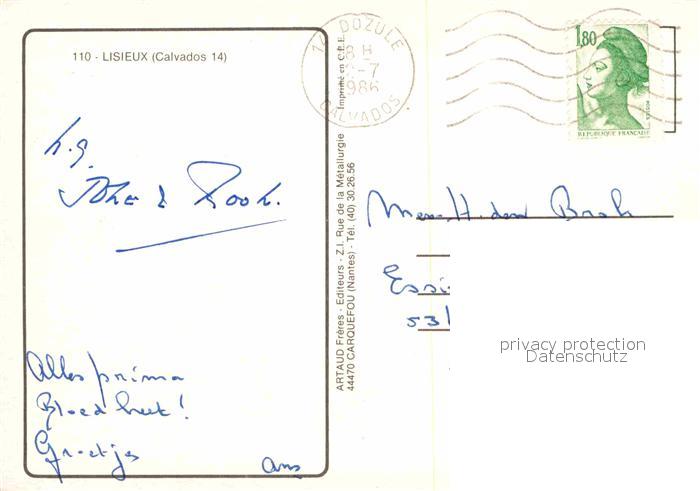 110 - LISIEUX (Calvados 14)
h.g.
Alles prima
Bloed heet!
Groetjes
Ans
ARTAUD Frères - Editeurs - Z.I. Rue de la Métallurgie
44470 CARQUEFOU (Nantes) - Tél. (40) 30.26.56
Imprimé en C.E.E.
14 DOZULE
8 H
-7
1986
CALVADOS
1,80
REPUBLIQUE FRANÇAISE
H. den
Essi
531
privacy protection
Datenschutz